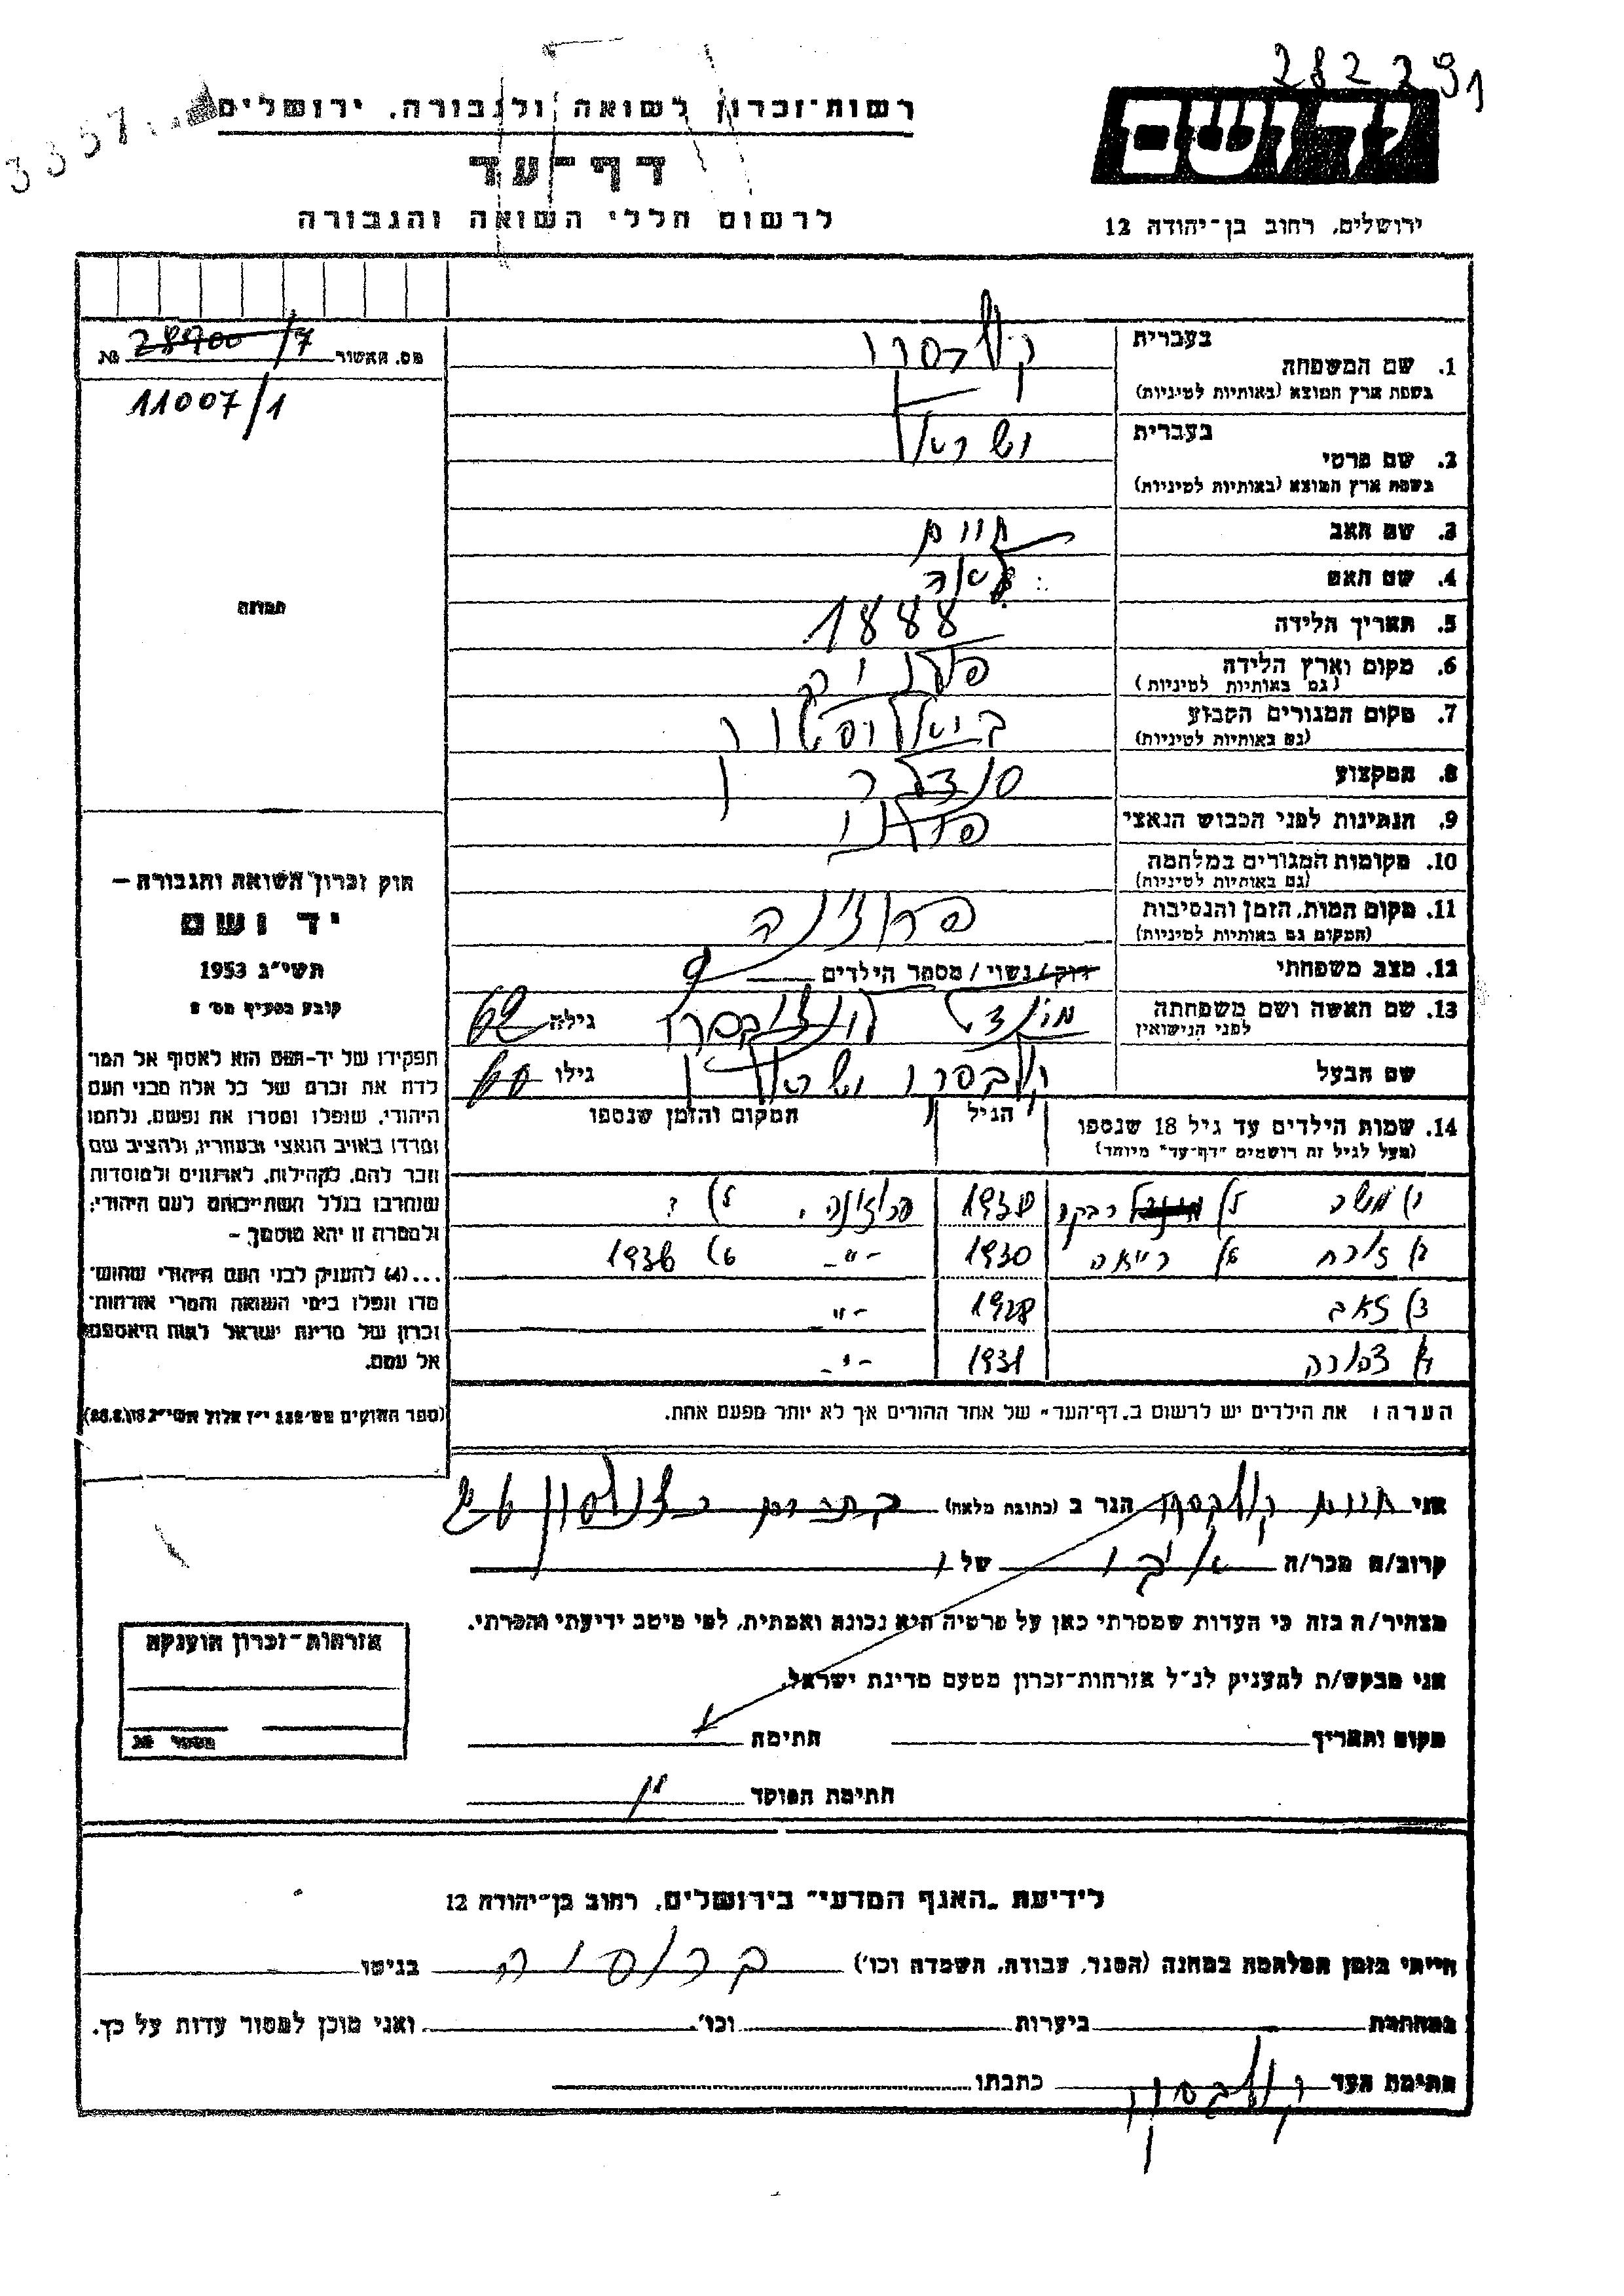 282291
3357
רשות־זכרון לשואה ולגבורה, ירושלים
דף־עד
לרשום חללי השואה והגבורה
יד ושם
ירושלים, רחוב בן־יהודה 12
מס. האשור 28900/7 №
11007/1
תמונה
1. שם המשפחה
בעברית
בשפת ארץ המוצא (באותיות לטיניות)
2. שם פרטי ישראל
בעברית
בשפת ארץ המוצא (באותיות לטיניות)
3. שם האב חיים
4. שם האם לאה
5. תאריך הלידה 1888
6. מקום וארץ הלידה
(גם באותיות לטיניות)
7. מקום המגורים הקבוע ביאליסטוק
(גם באותיות לטיניות)
8. המקצוע סנדלר
9. הנתינות לפני הכבוש הנאצי פולני
10. מקומות המגורים במלחמה
(גם באותיות לטיניות)
11. מקום המות, הזמן והנסיבות פרוז'נה
(המקום גם באותיות לטיניות)
12. מצב משפחתי רוק / נשוי / מספר הילדים 9
13. שם האשה ושם משפחתה גילה
לפני הנישואין
שם הבעל ישראל גילו
14. שמות הילדים עד גיל 18 שנספו הגיל המקום והזמן שנספו
(מעל לגיל זה רושמים "דף־עד" מיוחד)
א) משה רבקה פרוז'נה
1930 -"- 1936
ג) זאב 1928 -"-
ד) צפורה 1931 -"-
הערה: את הילדים יש לרשום ב"דף־העד" של אחד ההורים אך לא יותר מפעם אחת.
חוק זכרון השואה והגבורה —
יד ושם
תשי"ג 1953
קובע בסעיף מס' 2
תפקידו של יד־ושם הוא לאסוף אל המו־
לדת את זכרם של כל אלה מבני העם
היהודי, שנפלו ומסרו את נפשם, נלחמו
ומרדו באויב הנאצי ובעוזריו, ולהציב שם
וזכר להם, לקהילות, לארגונים ולמוסדות
שנחרבו בגלל השתייכותם לעם היהודי;
ולמטרה זו יהא מוסמך —
...(4) להעניק לבני העם היהודי שהוש־
מדו ונפלו בימי השואה והמרי אזרחות־
זכרון של מדינת ישראל לאות היאספם
אל עמם.
(ספר החוקים מס' 132 י"ז אלול תשי"ג 28.8.53)
אני חיים הגר ב (כתובת מלאה)
קרוב/ה מכר/ה של
מצהיר/ה בזה כי העדות שמסרתי כאן על פרטיה היא נכונה ואמתית, לפי מיטב ידיעתי והכרתי.
אני מבקש/ת להעניק לנ"ל אזרחות־זכרון מטעם מדינת ישראל.
מקום ותאריך חתימה
חתימת המוסד
אזרחות־זכרון הוענקה
מספר №
לידיעת "האגף המדעי" בירושלים, רחוב בן־יהודה 12
הייתי בזמן המלחמה במחנה (הסגר, עבודה, השמדה וכו') ברוסיה בגיטו
במחתרת ביערות וכו' ואני מוכן למסור עדות על כך.
חתימת העד כתבתו